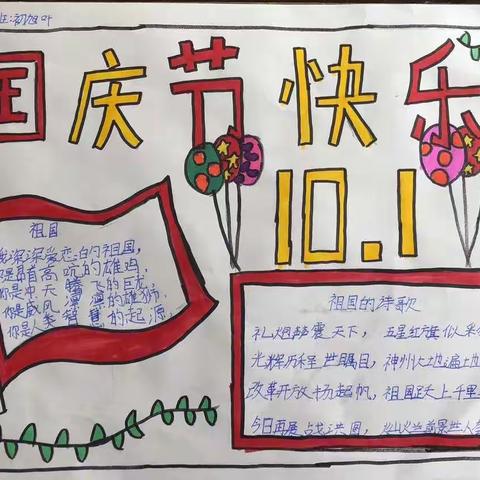 班:初旭叶
国庆节快乐
10.1
祖国
我深深爱恋的祖国,
你是昂首高吭的雄鸡,
你是中天腾飞的巨龙,
你是威风凛凛的雄狮,
你是人类智慧的起源,
祖国的诗歌
礼炮声震天下，五星红旗似采
光辉历程世瞩目，神州大地遍地
改革开放扬起帆，祖国踏上千里
今日再展